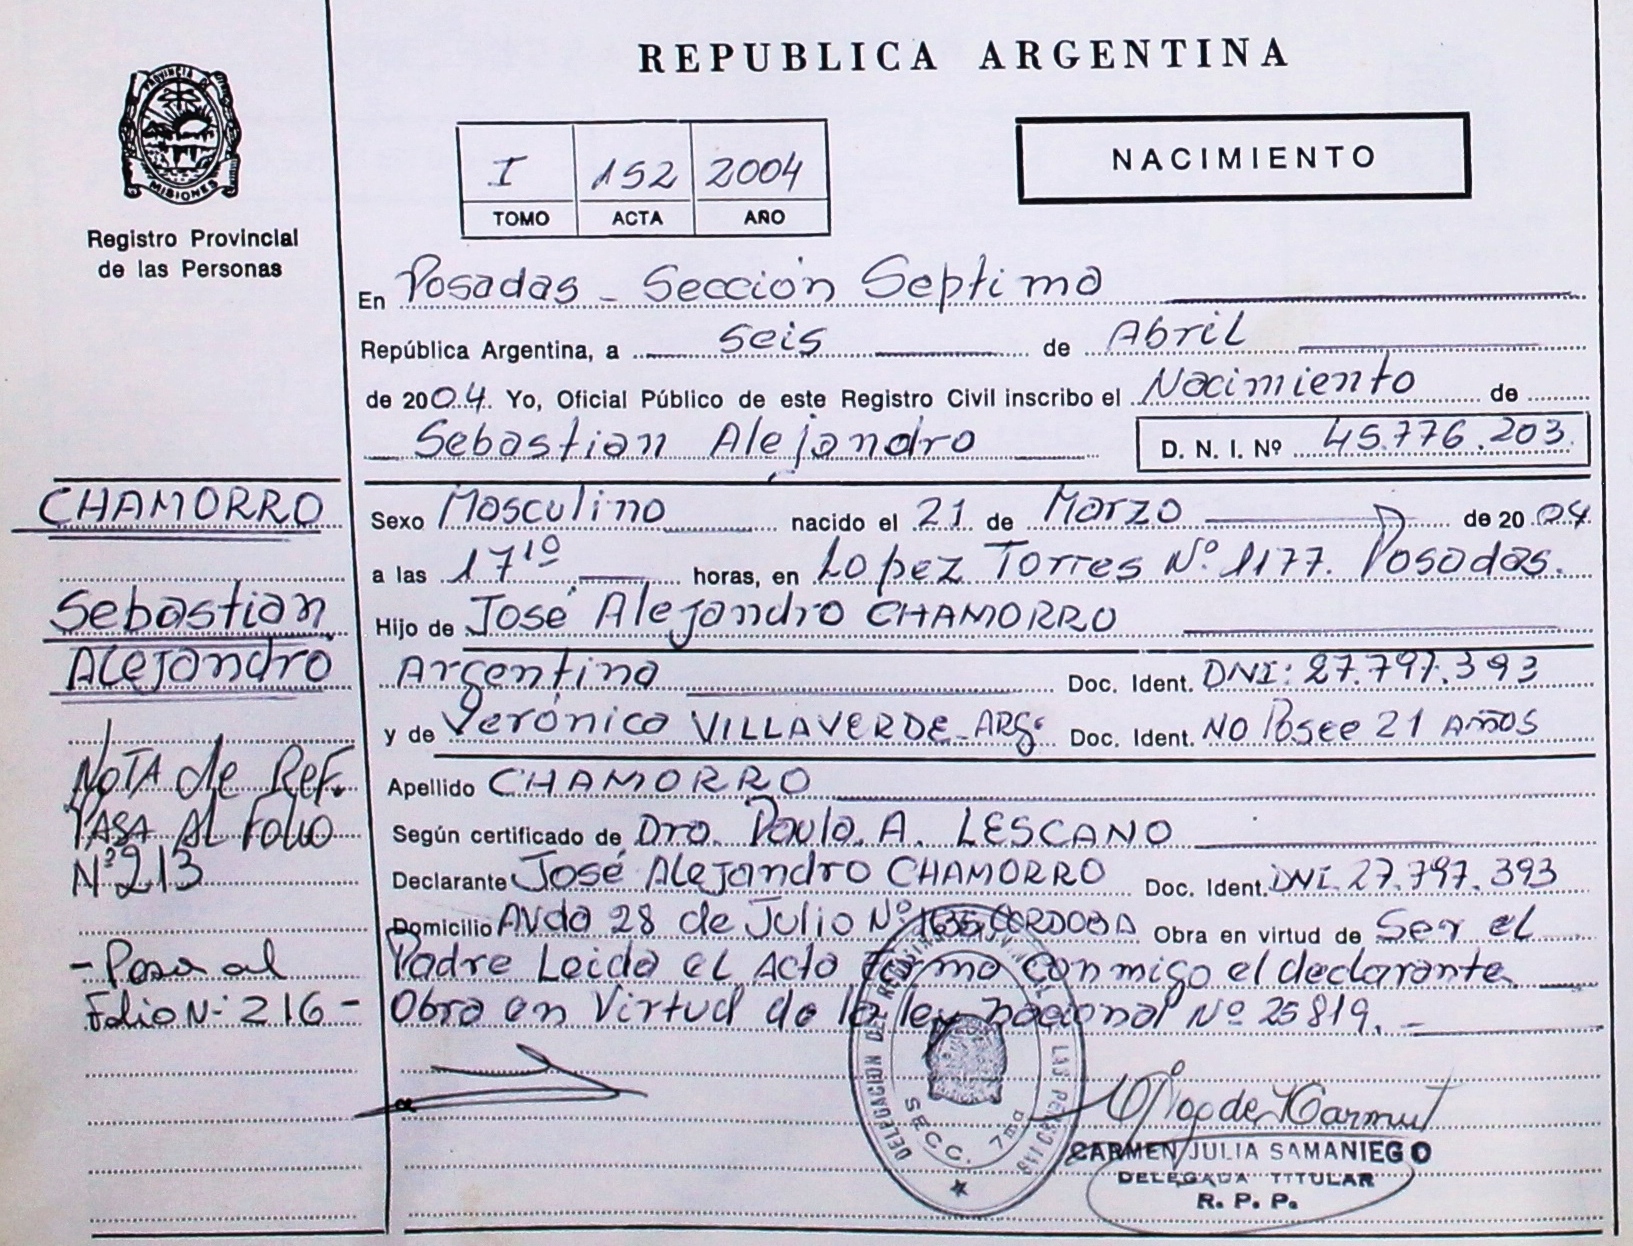 REPUBLICA ARGENTINA
PROVINCIA DE
MISIONES
Registro Provincial
de las Personas
I 152 2004
TOMO ACTA AÑO
NACIMIENTO
En Posadas - Sección Septima
República Argentina, a seis de Abril
de 2004. Yo, Oficial Público de este Registro Civil inscribo el Nacimiento de
Sebastian Alejandro D. N. I. Nº 45.776.203.
CHAMORRO
Sebastian
Alejandro
NOTA de Ref.
PASA AL Folio
Nº 213
- Pasa al
Folio Nº 216 -
Sexo Masculino nacido el 21 de Marzo de 2004.
a las 17¹⁰ horas, en Lopez Torres Nº 1177. Posadas.
Hijo de José Alejandro CHAMORRO
Argentino Doc. Ident. DNI: 27.797.393
y de Verónica VILLAVERDE - ARG. Doc. Ident. NO Posee 21 AÑOS
Apellido CHAMORRO
Según certificado de Dra. Paula. A. LESCANO
Declarante José Alejandro CHAMORRO Doc. Ident. DNI. 27.797.393
Domicilio AVda 28 de Julio Nº 1635 CORDOBA Obra en virtud de Ser el
Padre Leida el Acta firma conmigo el declarante
Obra en Virtud de la ley nacional Nº 25819. -
DELEGACION DEL REGISTRO PROVINCIAL DE LAS PERSONAS
SECC. 7ma
CARMEN JULIA SAMANIEGO
DELEGADA TITULAR
R. P. P.